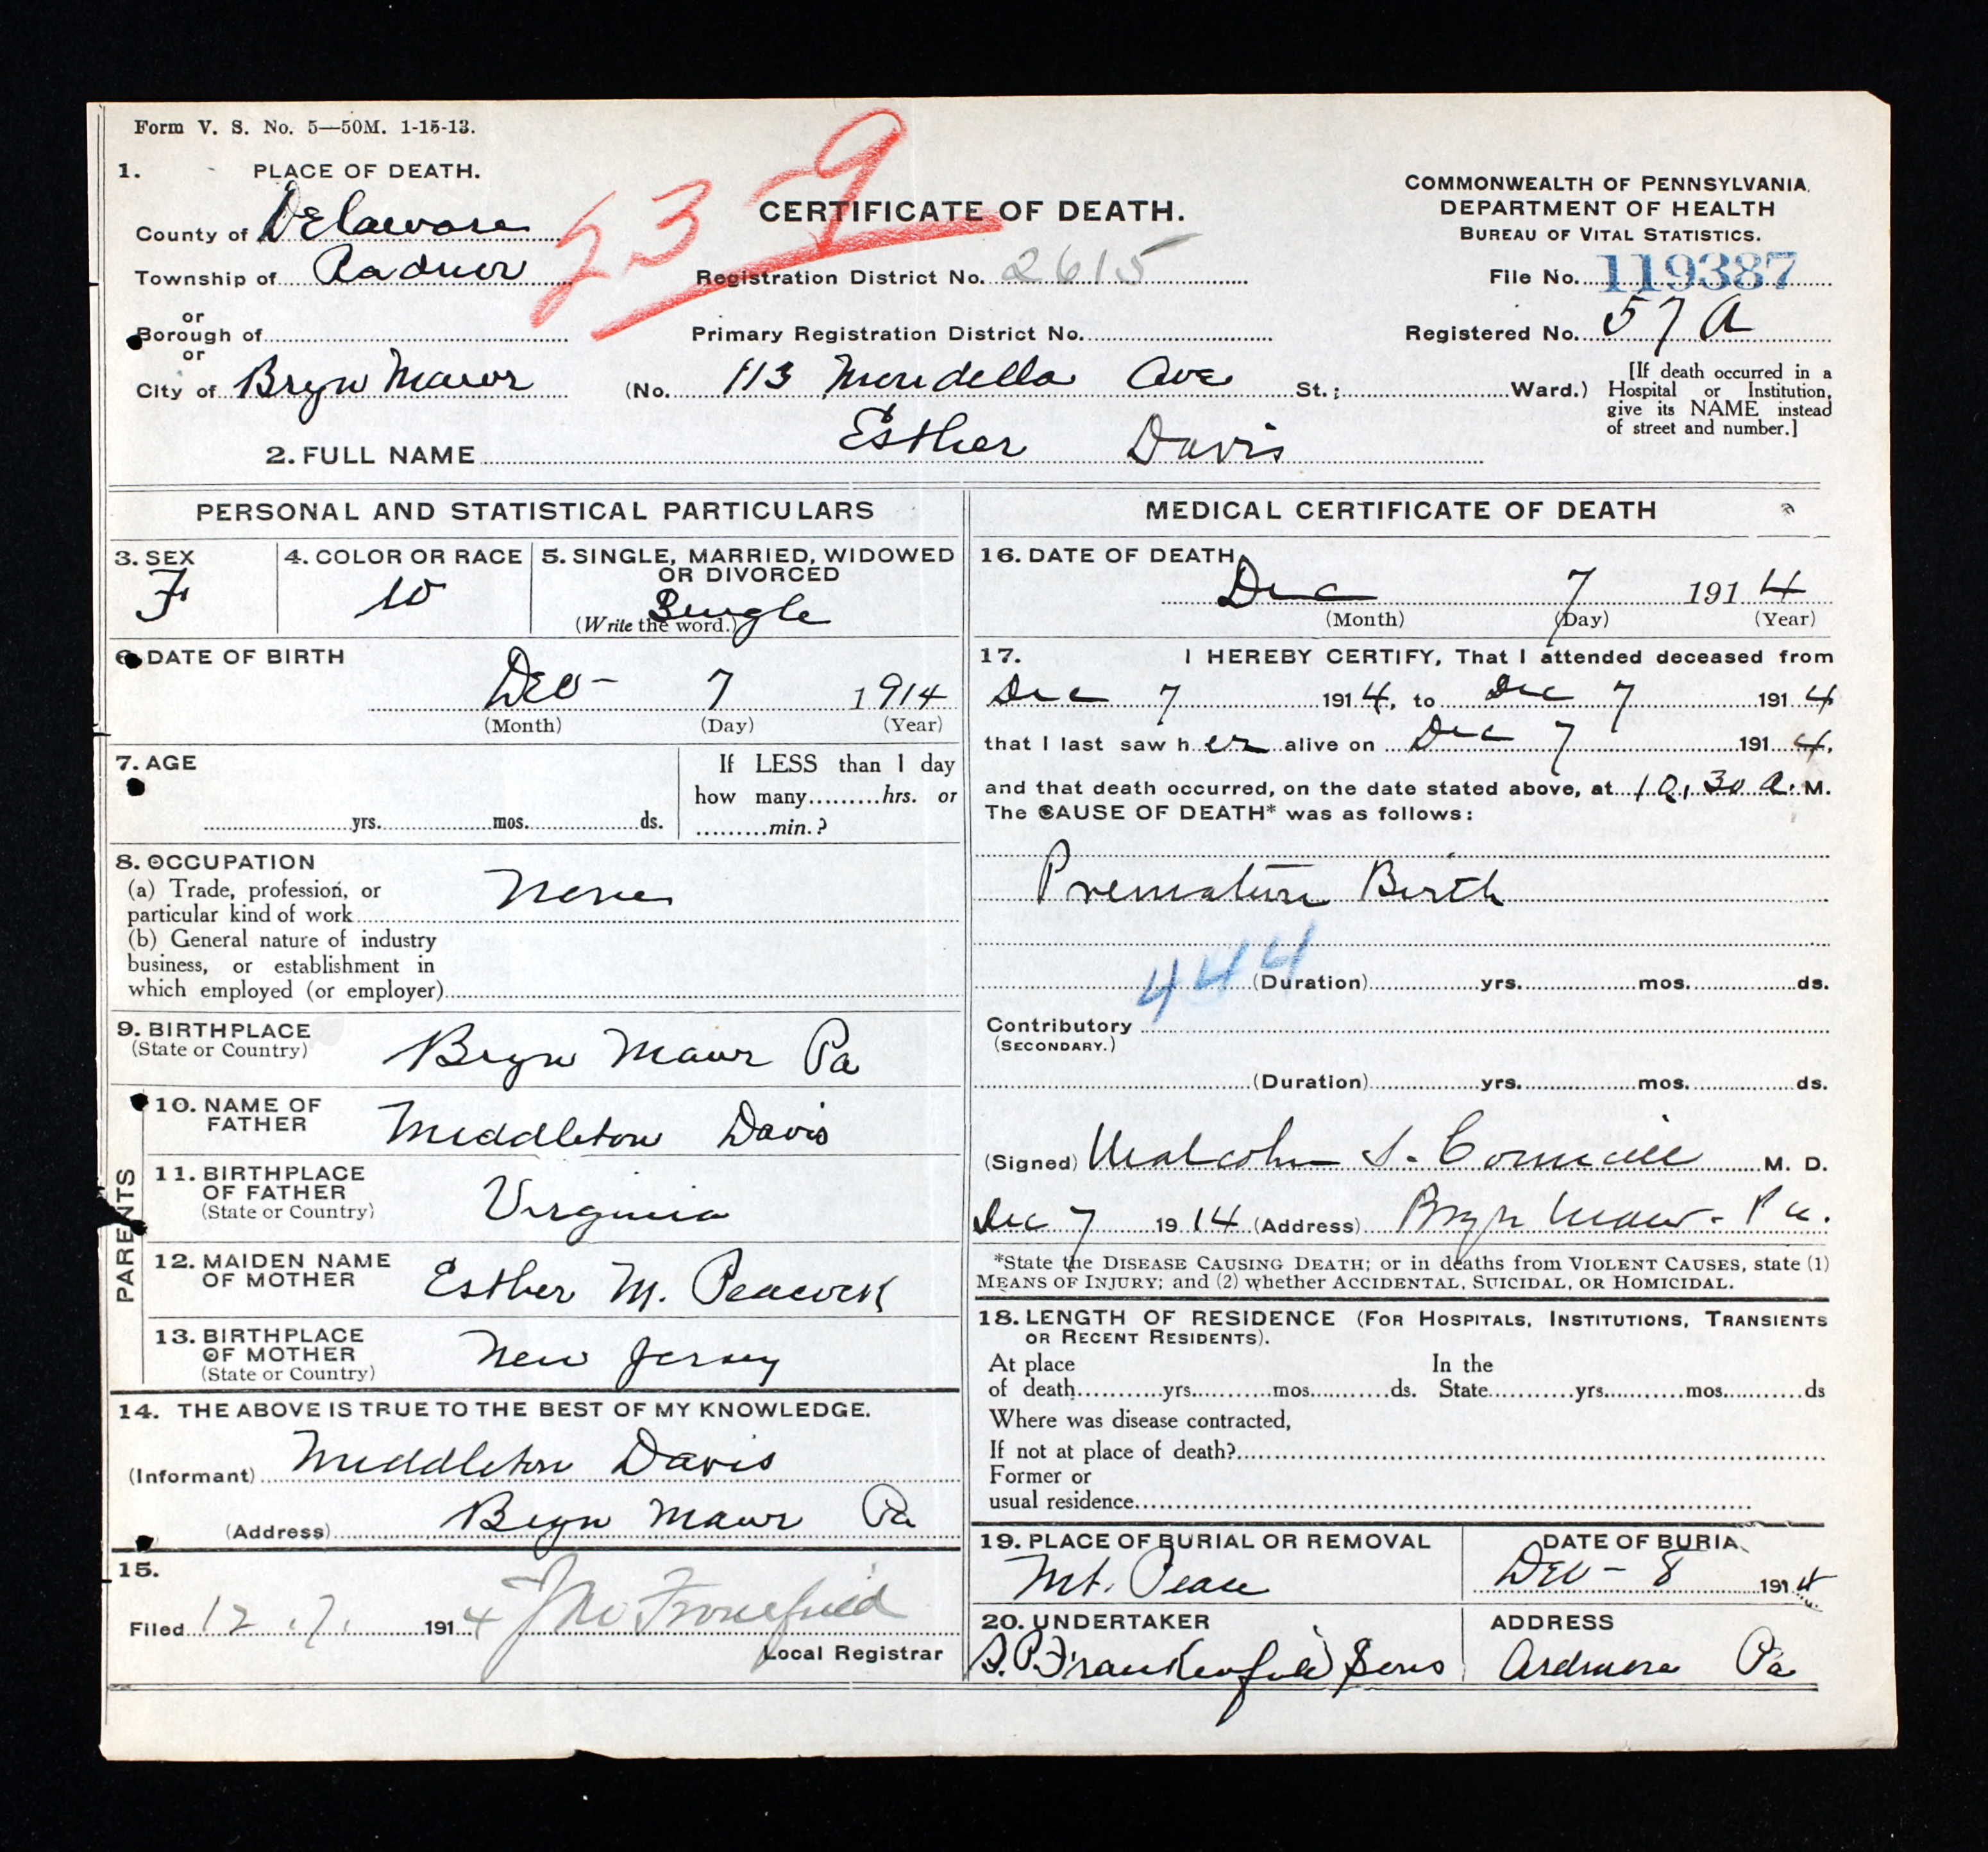 Form V. S. No. 5—50M. 1-15-13.
1. PLACE OF DEATH.
County of Delaware
Township of Radnor
or
Borough of
or
City of Bryn Mawr
23-9
CERTIFICATE OF DEATH.
Registration District No. 2615
Primary Registration District No.
(No. 113 Mondella Ave St.; Ward.)
COMMONWEALTH OF PENNSYLVANIA.
DEPARTMENT OF HEALTH
BUREAU OF VITAL STATISTICS.
File No. 119387
Registered No. 57 A
[If death occurred in a
Hospital or Institution,
give its NAME instead
of street and number.]
2. FULL NAME Esther Davis
PERSONAL AND STATISTICAL PARTICULARS
3. SEX
F
4. COLOR OR RACE
W
5. SINGLE, MARRIED, WIDOWED
OR DIVORCED
(Write the word.) Single
6. DATE OF BIRTH
Dec - 7 1914
(Month) (Day) (Year)
7. AGE
yrs. mos. ds.
If LESS than 1 day
how many hrs. or
min.?
8. OCCUPATION
(a) Trade, profession, or
particular kind of work None
(b) General nature of industry
business, or establishment in
which employed (or employer)
9. BIRTHPLACE
(State or Country) Bryn Mawr Pa
PARENTS
10. NAME OF
FATHER Middleton Davis
11. BIRTHPLACE
OF FATHER
(State or Country) Virginia
12. MAIDEN NAME
OF MOTHER Esther M. Peacock
13. BIRTHPLACE
OF MOTHER
(State or Country) New Jersey
14. THE ABOVE IS TRUE TO THE BEST OF MY KNOWLEDGE.
(Informant) Middleton Davis
(Address) Bryn Mawr Pa
15.
Filed 12.7. 1914
Local Registrar
MEDICAL CERTIFICATE OF DEATH
16. DATE OF DEATH
Dec 7 1914
(Month) (Day) (Year)
17. I HEREBY CERTIFY, That I attended deceased from
Dec 7 1914, to Dec 7 1914
that I last saw her alive on Dec 7 1914,
and that death occurred, on the date stated above, at 10,30 a. M.
The CAUSE OF DEATH* was as follows:
Premature Birth
444
(Duration) yrs. mos. ds.
Contributory
(SECONDARY.)
(Duration) yrs. mos. ds.
(Signed) Malcolm S. M. D.
Dec 7 1914 (Address) Bryn Mawr - Pa.
*State the DISEASE CAUSING DEATH; or in deaths from VIOLENT CAUSES, state (1)
MEANS OF INJURY; and (2) whether ACCIDENTAL, SUICIDAL, OR HOMICIDAL.
18. LENGTH OF RESIDENCE (FOR HOSPITALS, INSTITUTIONS, TRANSIENTS
OR RECENT RESIDENTS).
At place In the
of death yrs. mos. ds. State yrs. mos. ds
Where was disease contracted,
If not at place of death?
Former or
usual residence
19. PLACE OF BURIAL OR REMOVAL
Mt. Peace
DATE OF BURIA
Dec - 8 1914
20. UNDERTAKER
S.P. Frankenfield Sons
ADDRESS
Ardmore Pa